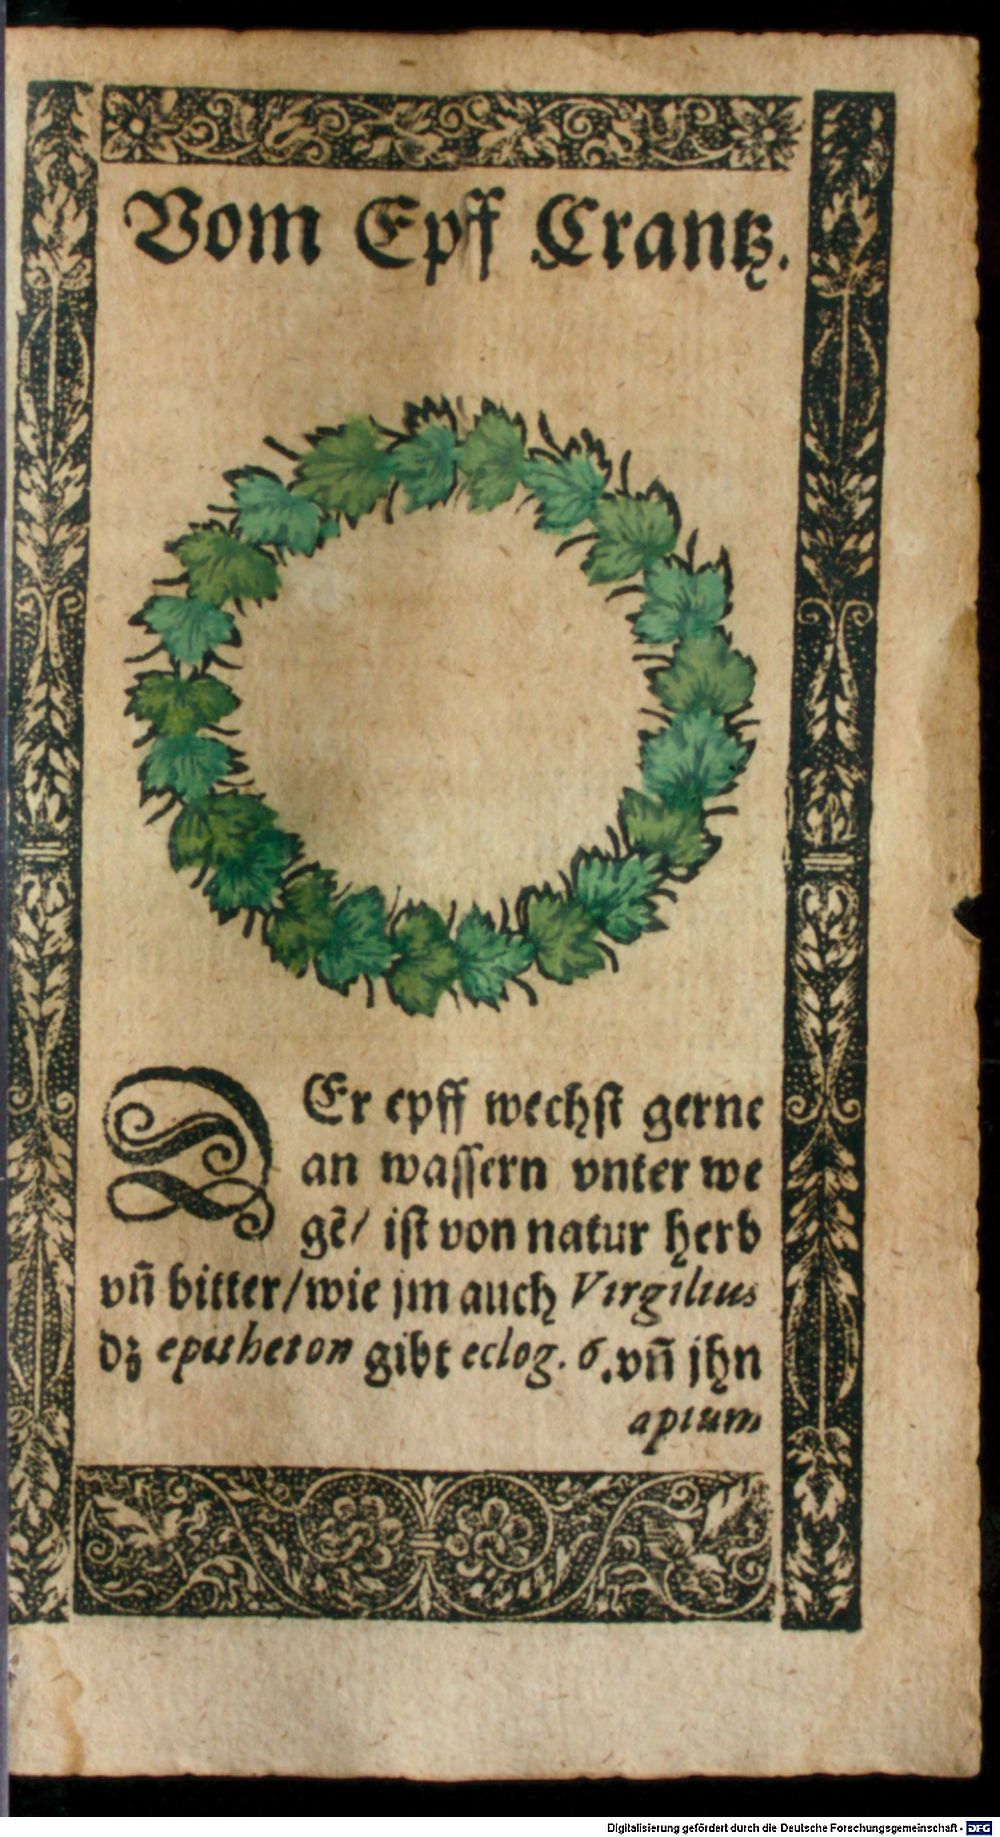 Vom Epff Crantz.
DEr epff wechst gerne
an wassern vnter we
gẽ/ ist von natur herb
vñ bitter/wie jm auch Virgilius
dz epitheton gibt eclog. 6.vñ jhn
apium
Digitalisierung gefördert durch die Deutsche Forschungsgemeinschaft - DFG